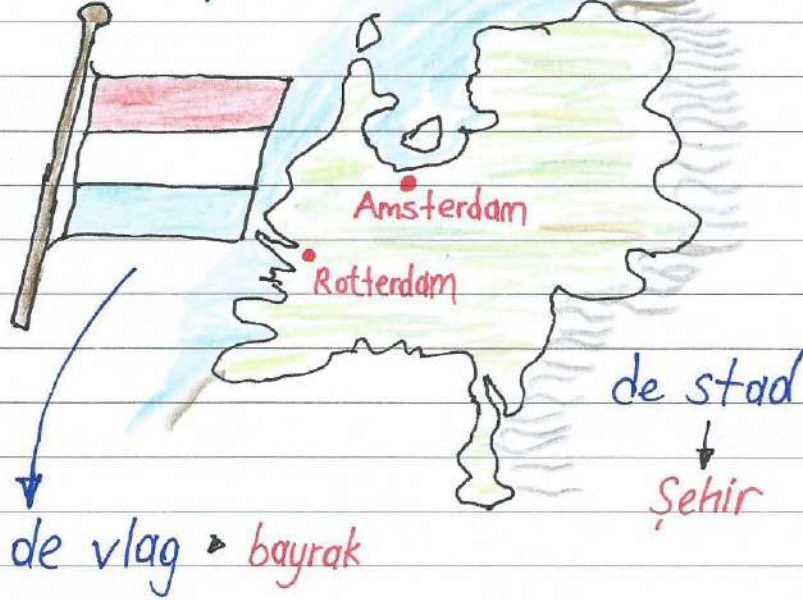 Amsterdam
Rotterdam
de stad
Şehir
de vlag ▸ bayrak